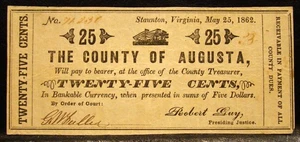 No.
Staunton, Virginia, May 25, 1862.
25 25
THE COUNTY OF AUGUSTA,
Will pay to bearer, at the office of the County Treasurer,
TWENTY-FIVE CENTS,
In Bankable Currency, when presented in sums of Five Dollars.
By Order of Court:
Robert Guy,
Presiding Justice.
TWENTY-FIVE CENTS.
RECEIVABLE IN PAYMENT OF ALL
COUNTY DUES.